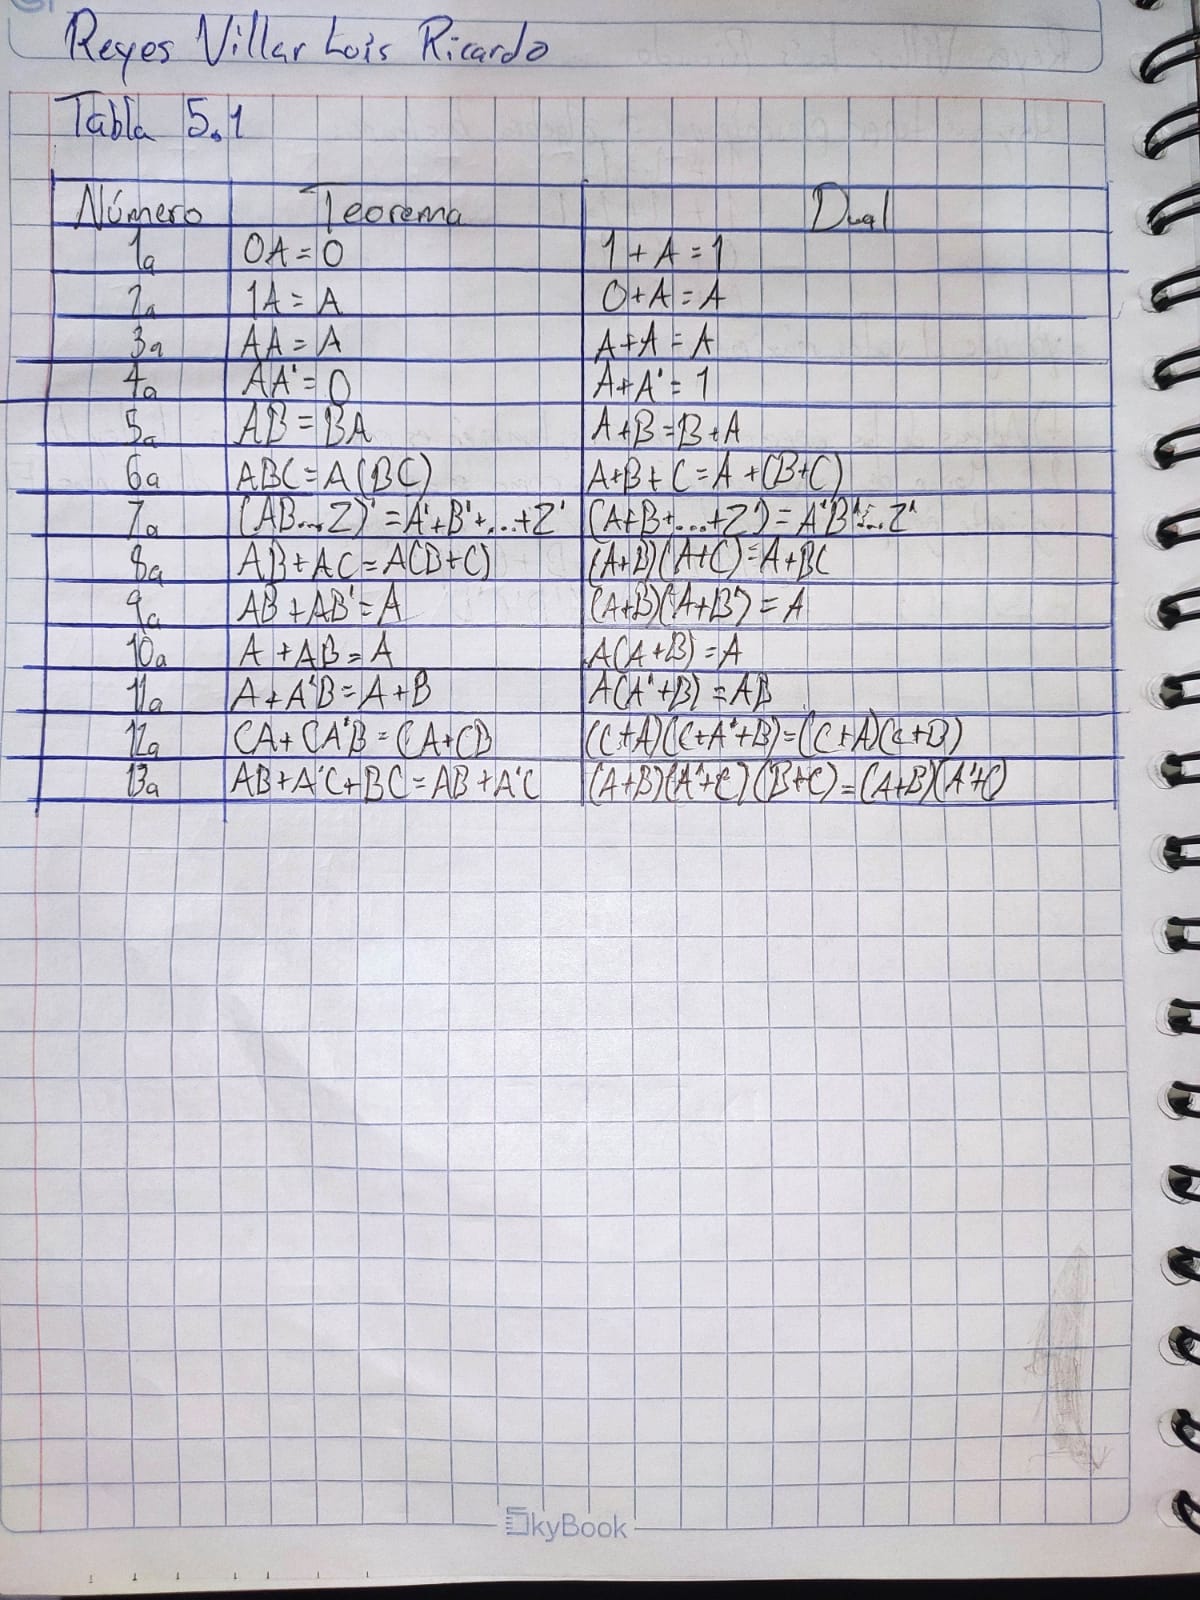 Reyes Villar Luis Ricardo
Tabla 5.1
Número Teorema Dual
1a 0A = 0 1 + A = 1
2a 1A = A 0+A = A
3a AA = A A+A = A
4a AA' = 0 A+A' = 1
5a AB = BA A+B=B+A
6a ABC=A(BC) A+B+C=A+(B+C)
7a (AB...Z)'=A'+B'+...+Z' (A+B+...+Z')=A'B'...Z'
8a AB+AC=A(B+C) (A+B)(A+C)=A+BC
9a AB+AB'=A (A+B)(A+B')=A
10a A+AB=A A(A+B)=A
11a A+A'B=A+B A(A'+B)=AB
12a CA+CA'B=CA+CB (C+A)(C+A'+B)=(C+A)(C+B)
13a AB+A'C+BC=AB+A'C (A+B)(A'+C)(B+C)=(A+B)(A'+C)
SkyBook